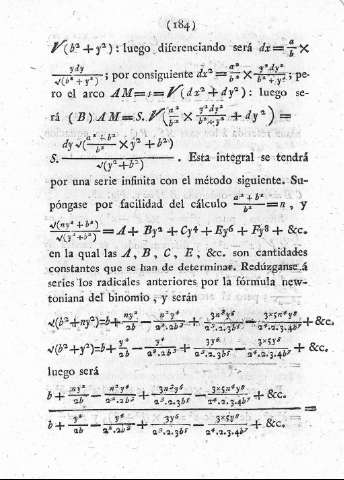 (184)
√(b²+y²): luego diferenciando será dx = a/b ×
ydy/√(b²+y²); por consiguiente dx² = a²/b² × y²dy²/b²+y²; pe-
ro el arco AM=s=√(dx²+dy²): luego se-
rá (B) AM=S.√(a²/b² × y²dy²/b²+y² + dy²) =
S. dy√(a²+b²/b² × y²+b²)/√(y²+b²). Esta integral se tendrá
por una serie infinita con el método siguiente. Su-
póngase por facilidad del cálculo a²+b²/b² = n, y
√(ny²+b²)/√(y²+b²) = A + By² + Cy⁴ + Ey⁶ + Fy⁸ + &c.
en la qual las A, B, C, E, &c. son cantidades
constantes que se han de determinar. Redúzganse á
series los radicales anteriores por la fórmula new-
toniana del binomio, y serán
√(b²+ny²)=b+ny²/2b − n²y⁴/2².2b³ + 3n³y⁶/2³.2.3b⁵ − 3×5n⁴y⁸/2⁴.2.3.4b⁷ + &c.
√(b²+y²)=b+y²/2b − y⁴/2².2b³ + 3y⁶/2³.2.3b⁵ − 3×5y⁸/2⁴.2.3.4b⁷ + &c.
luego será
b + ny²/2b − n²y⁴/2².2b³ + 3n³y⁶/2³.2.3b⁵ − 3×5n⁴y⁸/2⁴.2.3.4b⁷ + &c.
b + y²/2b − y⁴/2².2b³ + 3y⁶/2³.2.3b⁵ − 3×5y⁸/2⁴.2.3.4b⁷ + &c. =